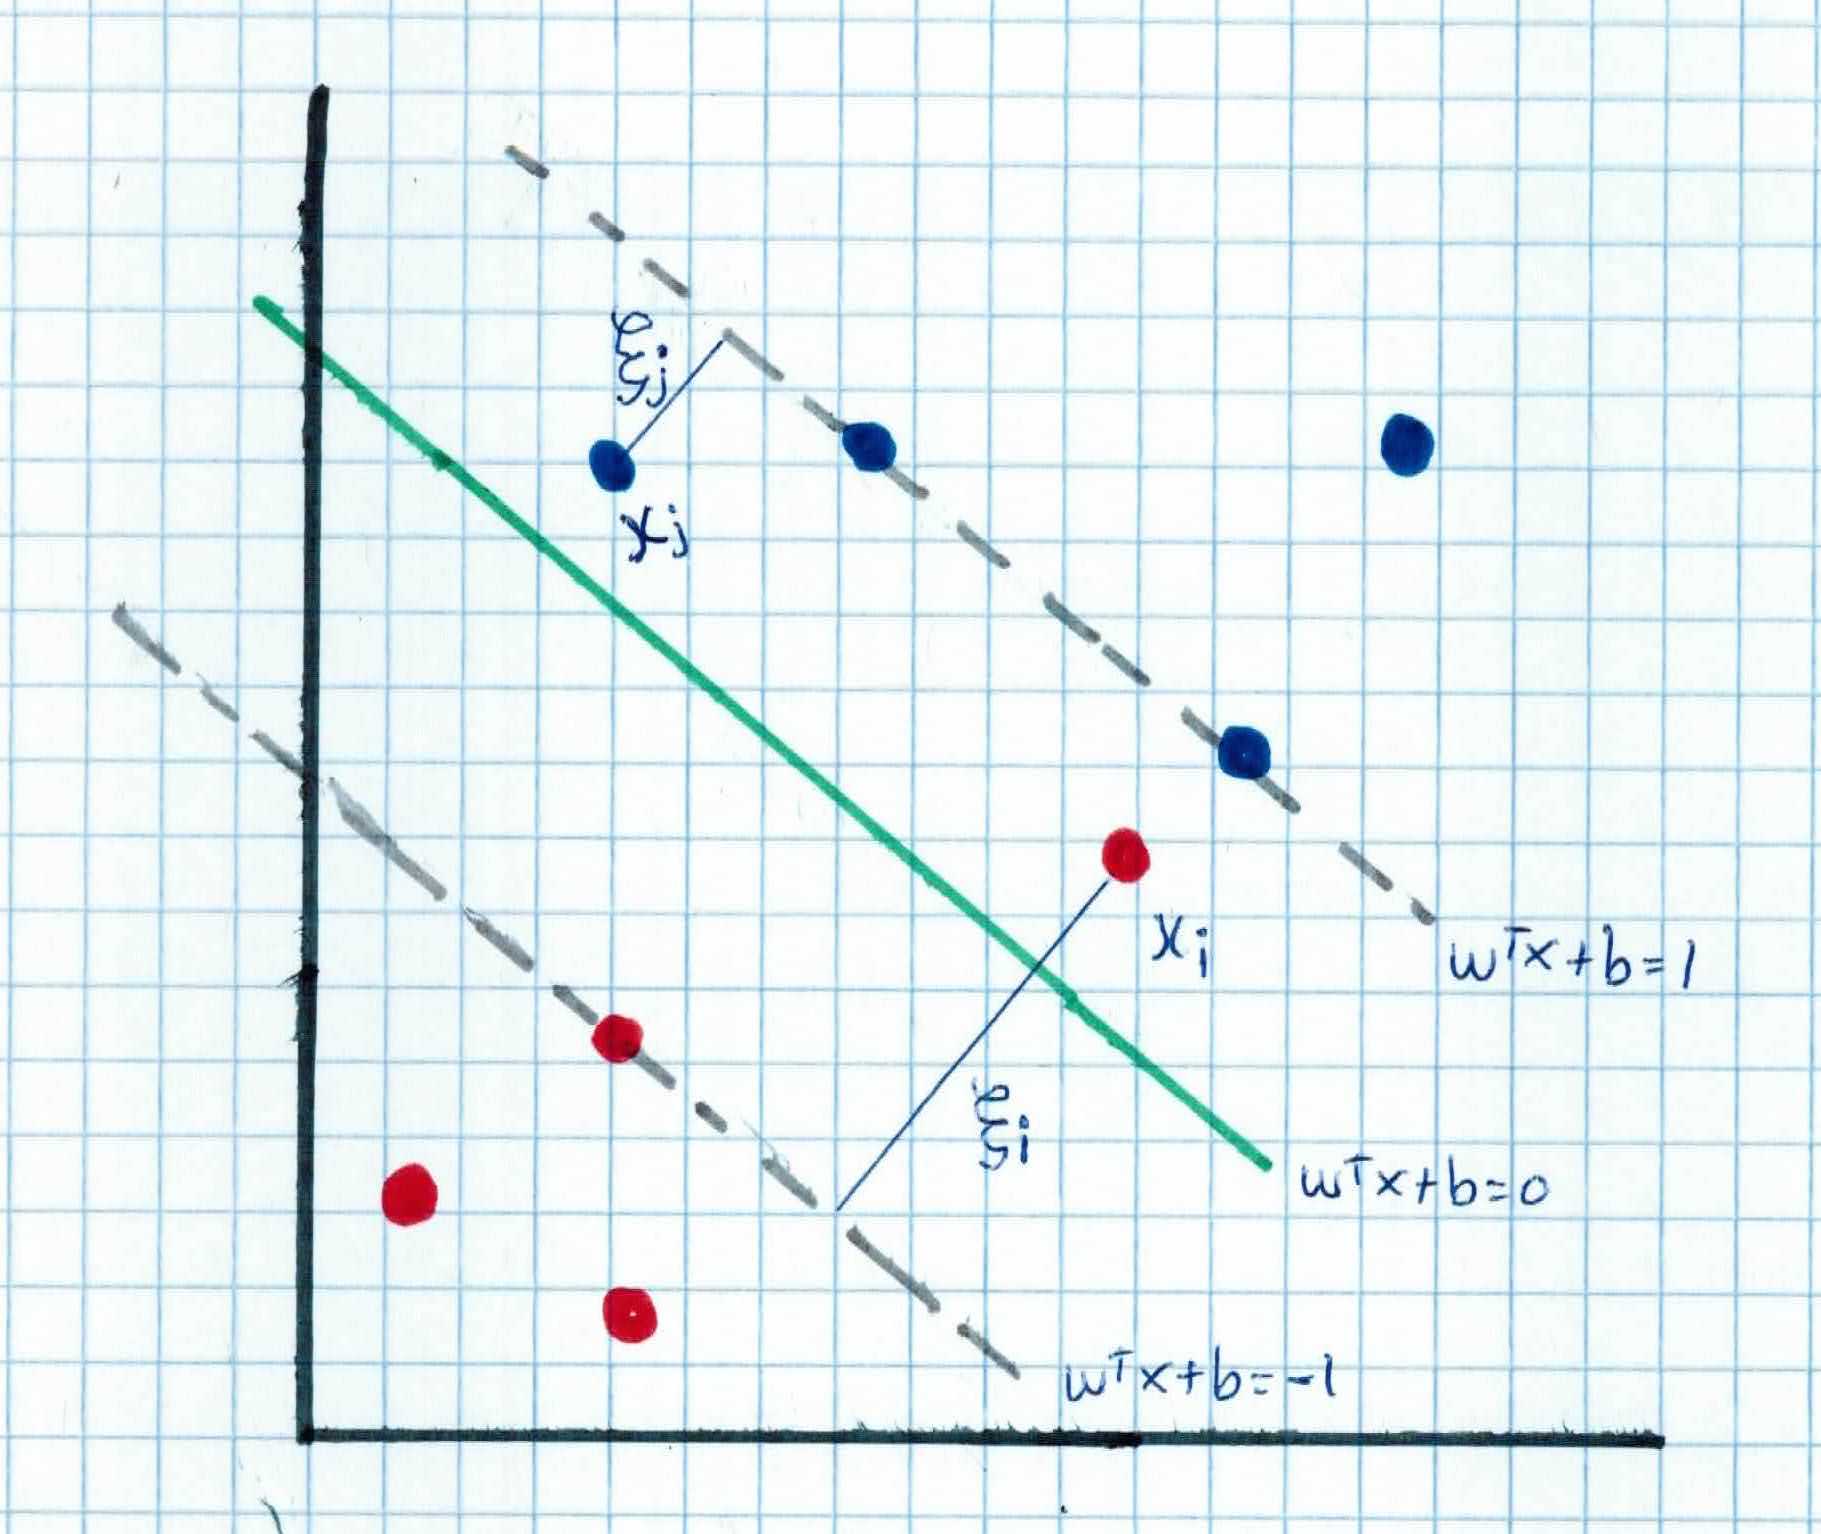 ξj
xj
xi
wᵀx+b=1
ξi
wᵀx+b=0
wᵀx+b=-1